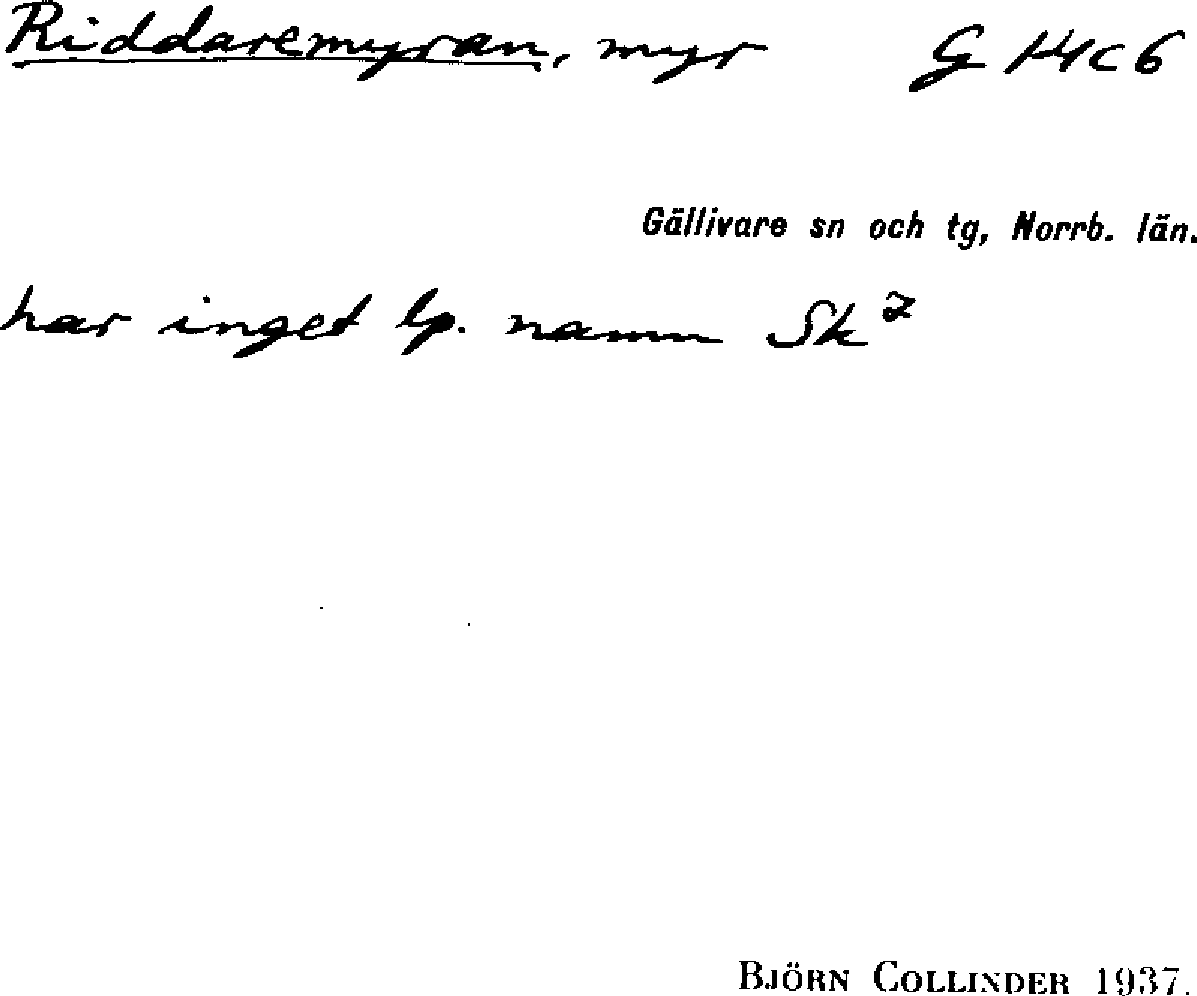 Riddaremyran, myr G 14c6
Gällivare sn och tg, Norrb. län.
har inget lp. namn Sk²
BJÖRN COLLINDER 1937.